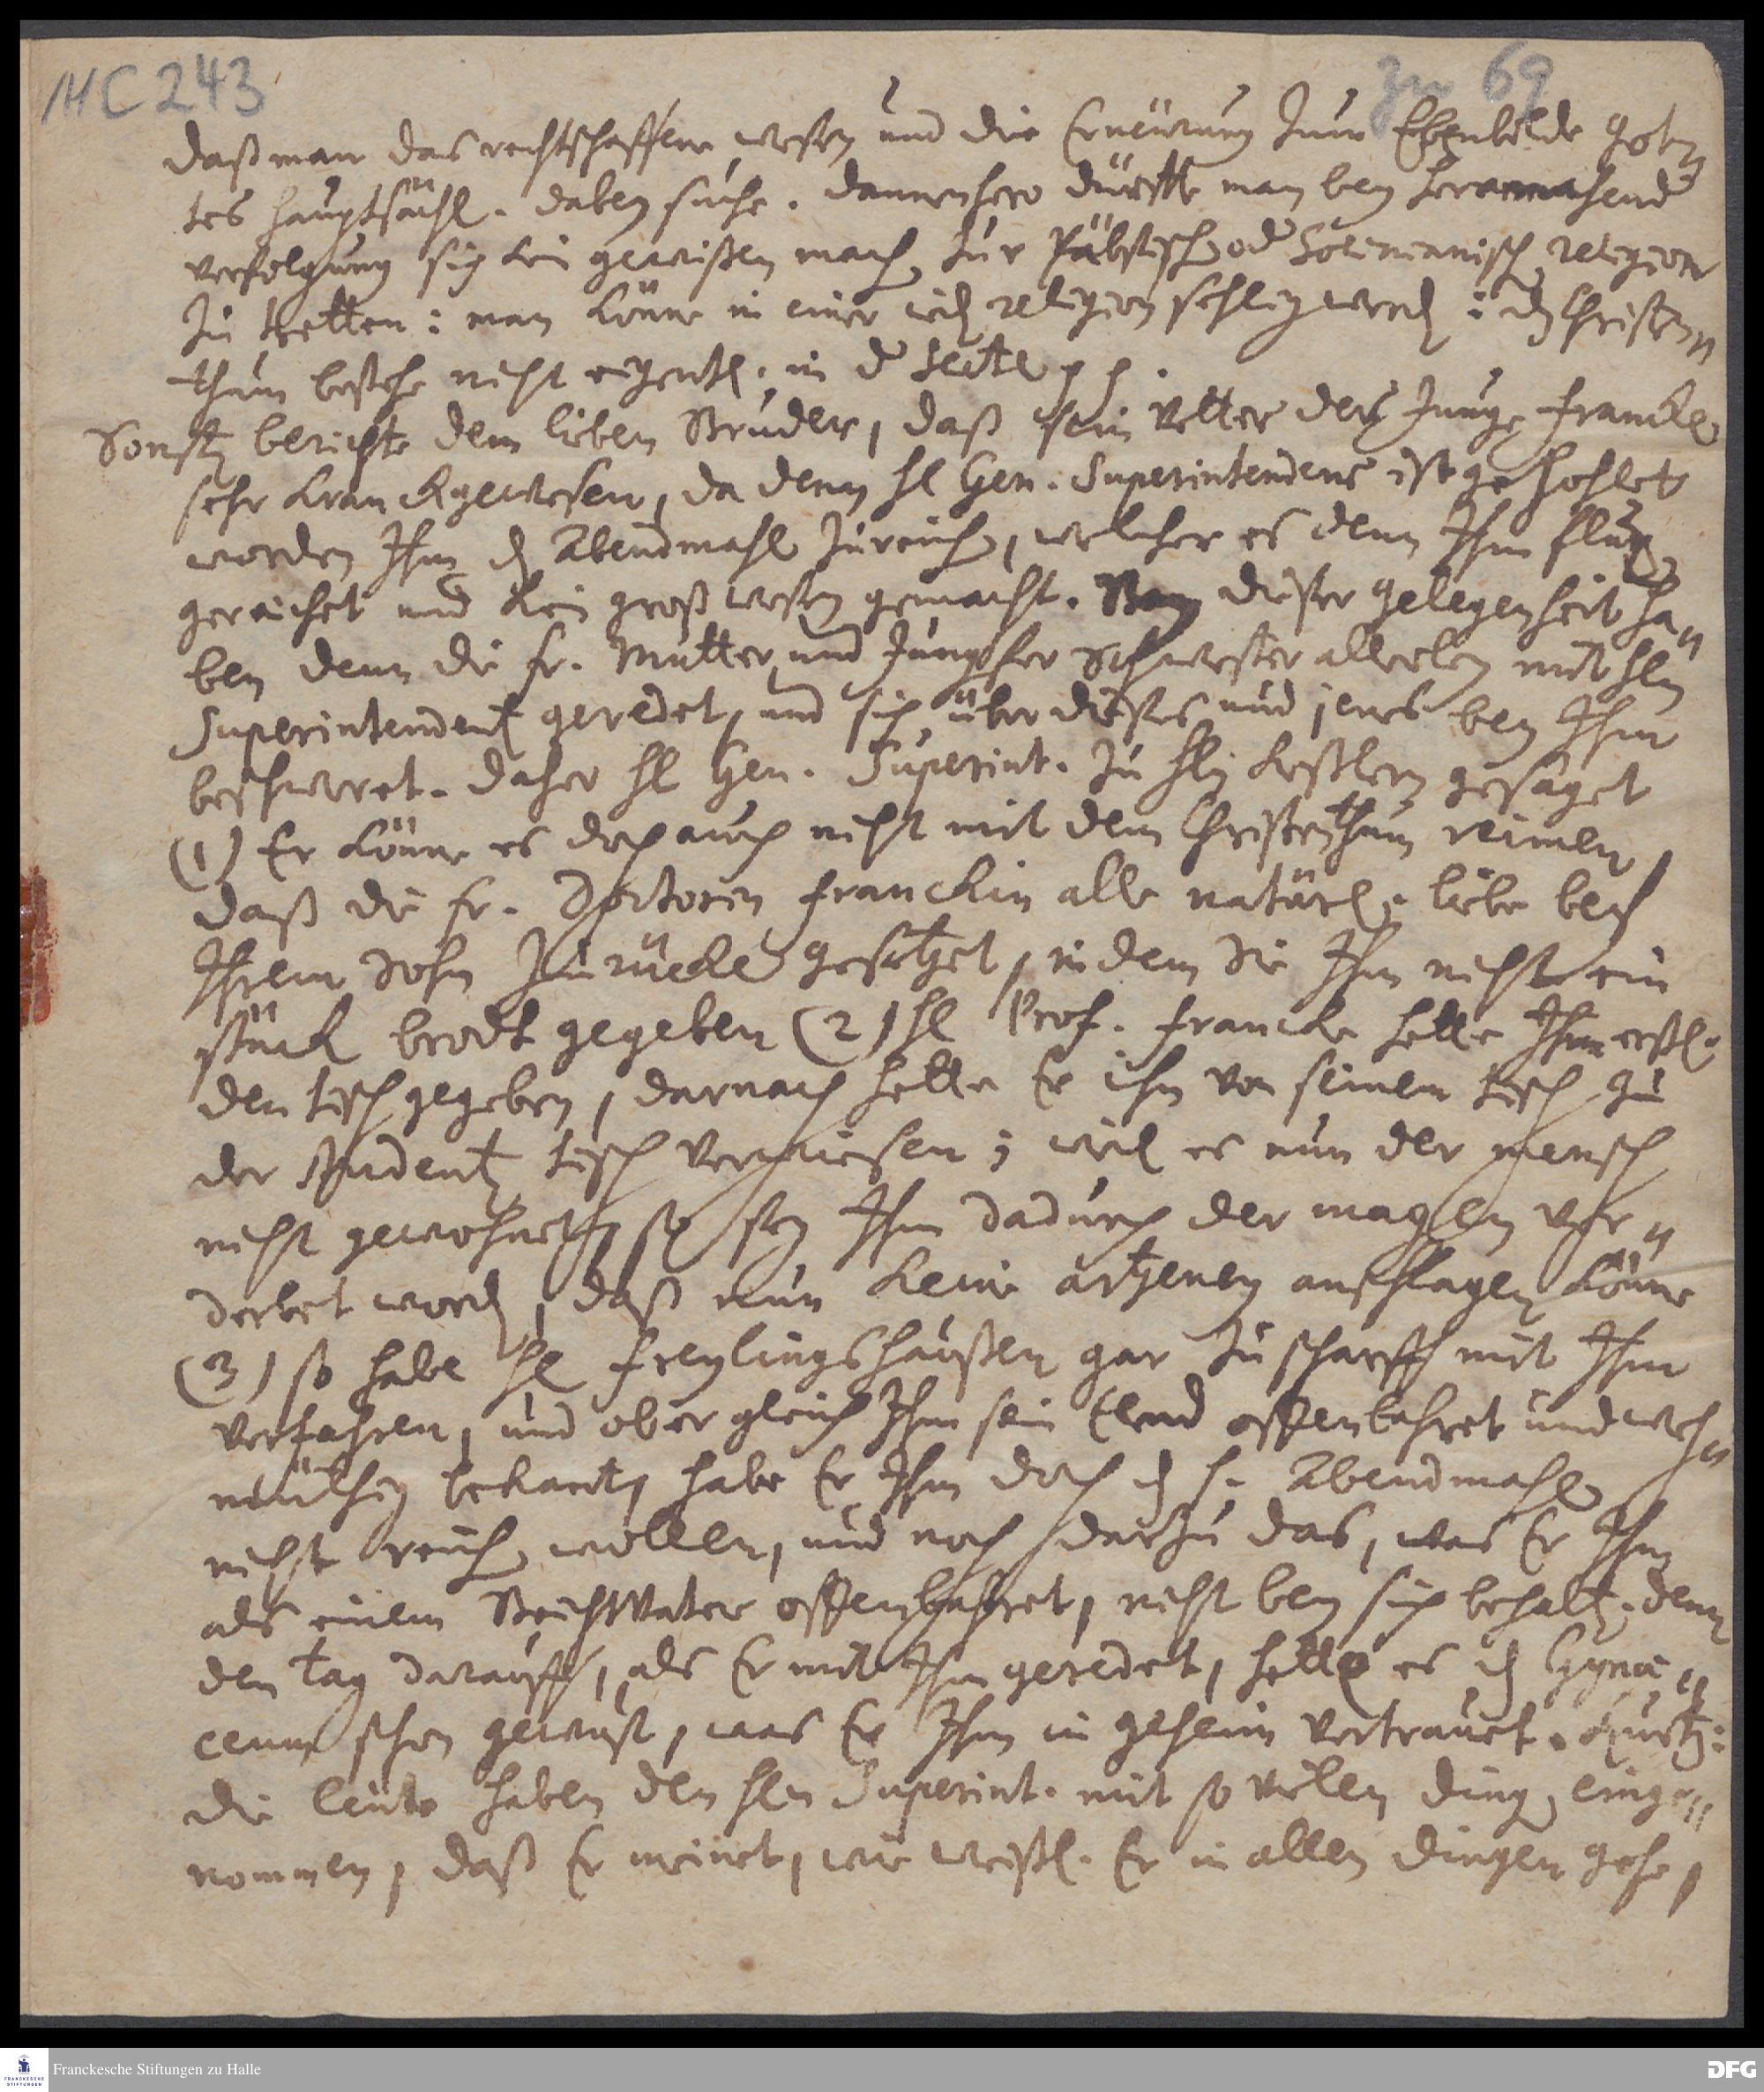 HC 243
zu 69
daß man das rechtschaffene wesen und die Erneürung zum Ebenbilde Got-
tes hauptsächl. dabey suche. dannenhero dürffte man bey herannahend
verfolgung sich kein gewißen mach zur Päbstisch od Socinianisch religion
zu tretten: man könne in einer ied religion sehlig werd: dz Christen-
thum bestehe nicht eigentl. in d Secte pp.
Sonst berichte dem lieben Bruder, daß sein Vetter der junge Francke
sehr kranck gewesen, da denn H Gen. Superintendens ist gehohlet
worden Ihm dz Abendmahl zu reich, welcher es denn Ihm flugs
gereichet und kein groß wesen gemacht. Bey dieser gelegenheit ha-
ben denn die Fr. Mutter und Jungfer Schwester allerley mit Hln
Superintendent geredet, und sich über dieses und jenes bey Ihm
beschweret. daher H Gen. Superint. zu Hln Keßlern gesaget
(1) Er könne es doch auch nicht mit dem Christenthum reimen,
daß die Fr. Doctorin Franckin alle natürl. liebe bey
Ihrem Sohn zurücke gesetzet, in dem Sie Ihm nicht ein
stück brodt gegeben (2) H Prof. Francke hette Ihm erstl.
den tisch gegeben, darnach hette Er ihn von seinem tisch zu
der Student tisch verwiesen; weil es nun der mensch
nicht gewohnet, so sey Ihm dadurch der magen ver-
derbet word, daß nun keine artzeney anschlagen könne
(3) so habe H Freylingshaußen gar zu scharff mit Ihm
verfahren, und ob er gleich Ihm sein Elend offenbahret und weh-
müthig bekant, habe Er Ihm doch dz h. Abendmahl
nicht reich wollen, und noch darzu das, was Er Ihm
als einem Beicht Vater offenbahret, nicht bey sich behalt. denn
den tag darauff, als Er mit Ihm geredet, hette es dz Gynae-
ceum schon gewust, was Er Ihm in geheim vertrauet. Kurtz:
die leute haben den Hln Superint. mit so vielen ding einge-
nommen, daß Er meinet, wie weißl. Er in allen dingen gehe,
Franckesche Stiftungen zu Halle
DFG